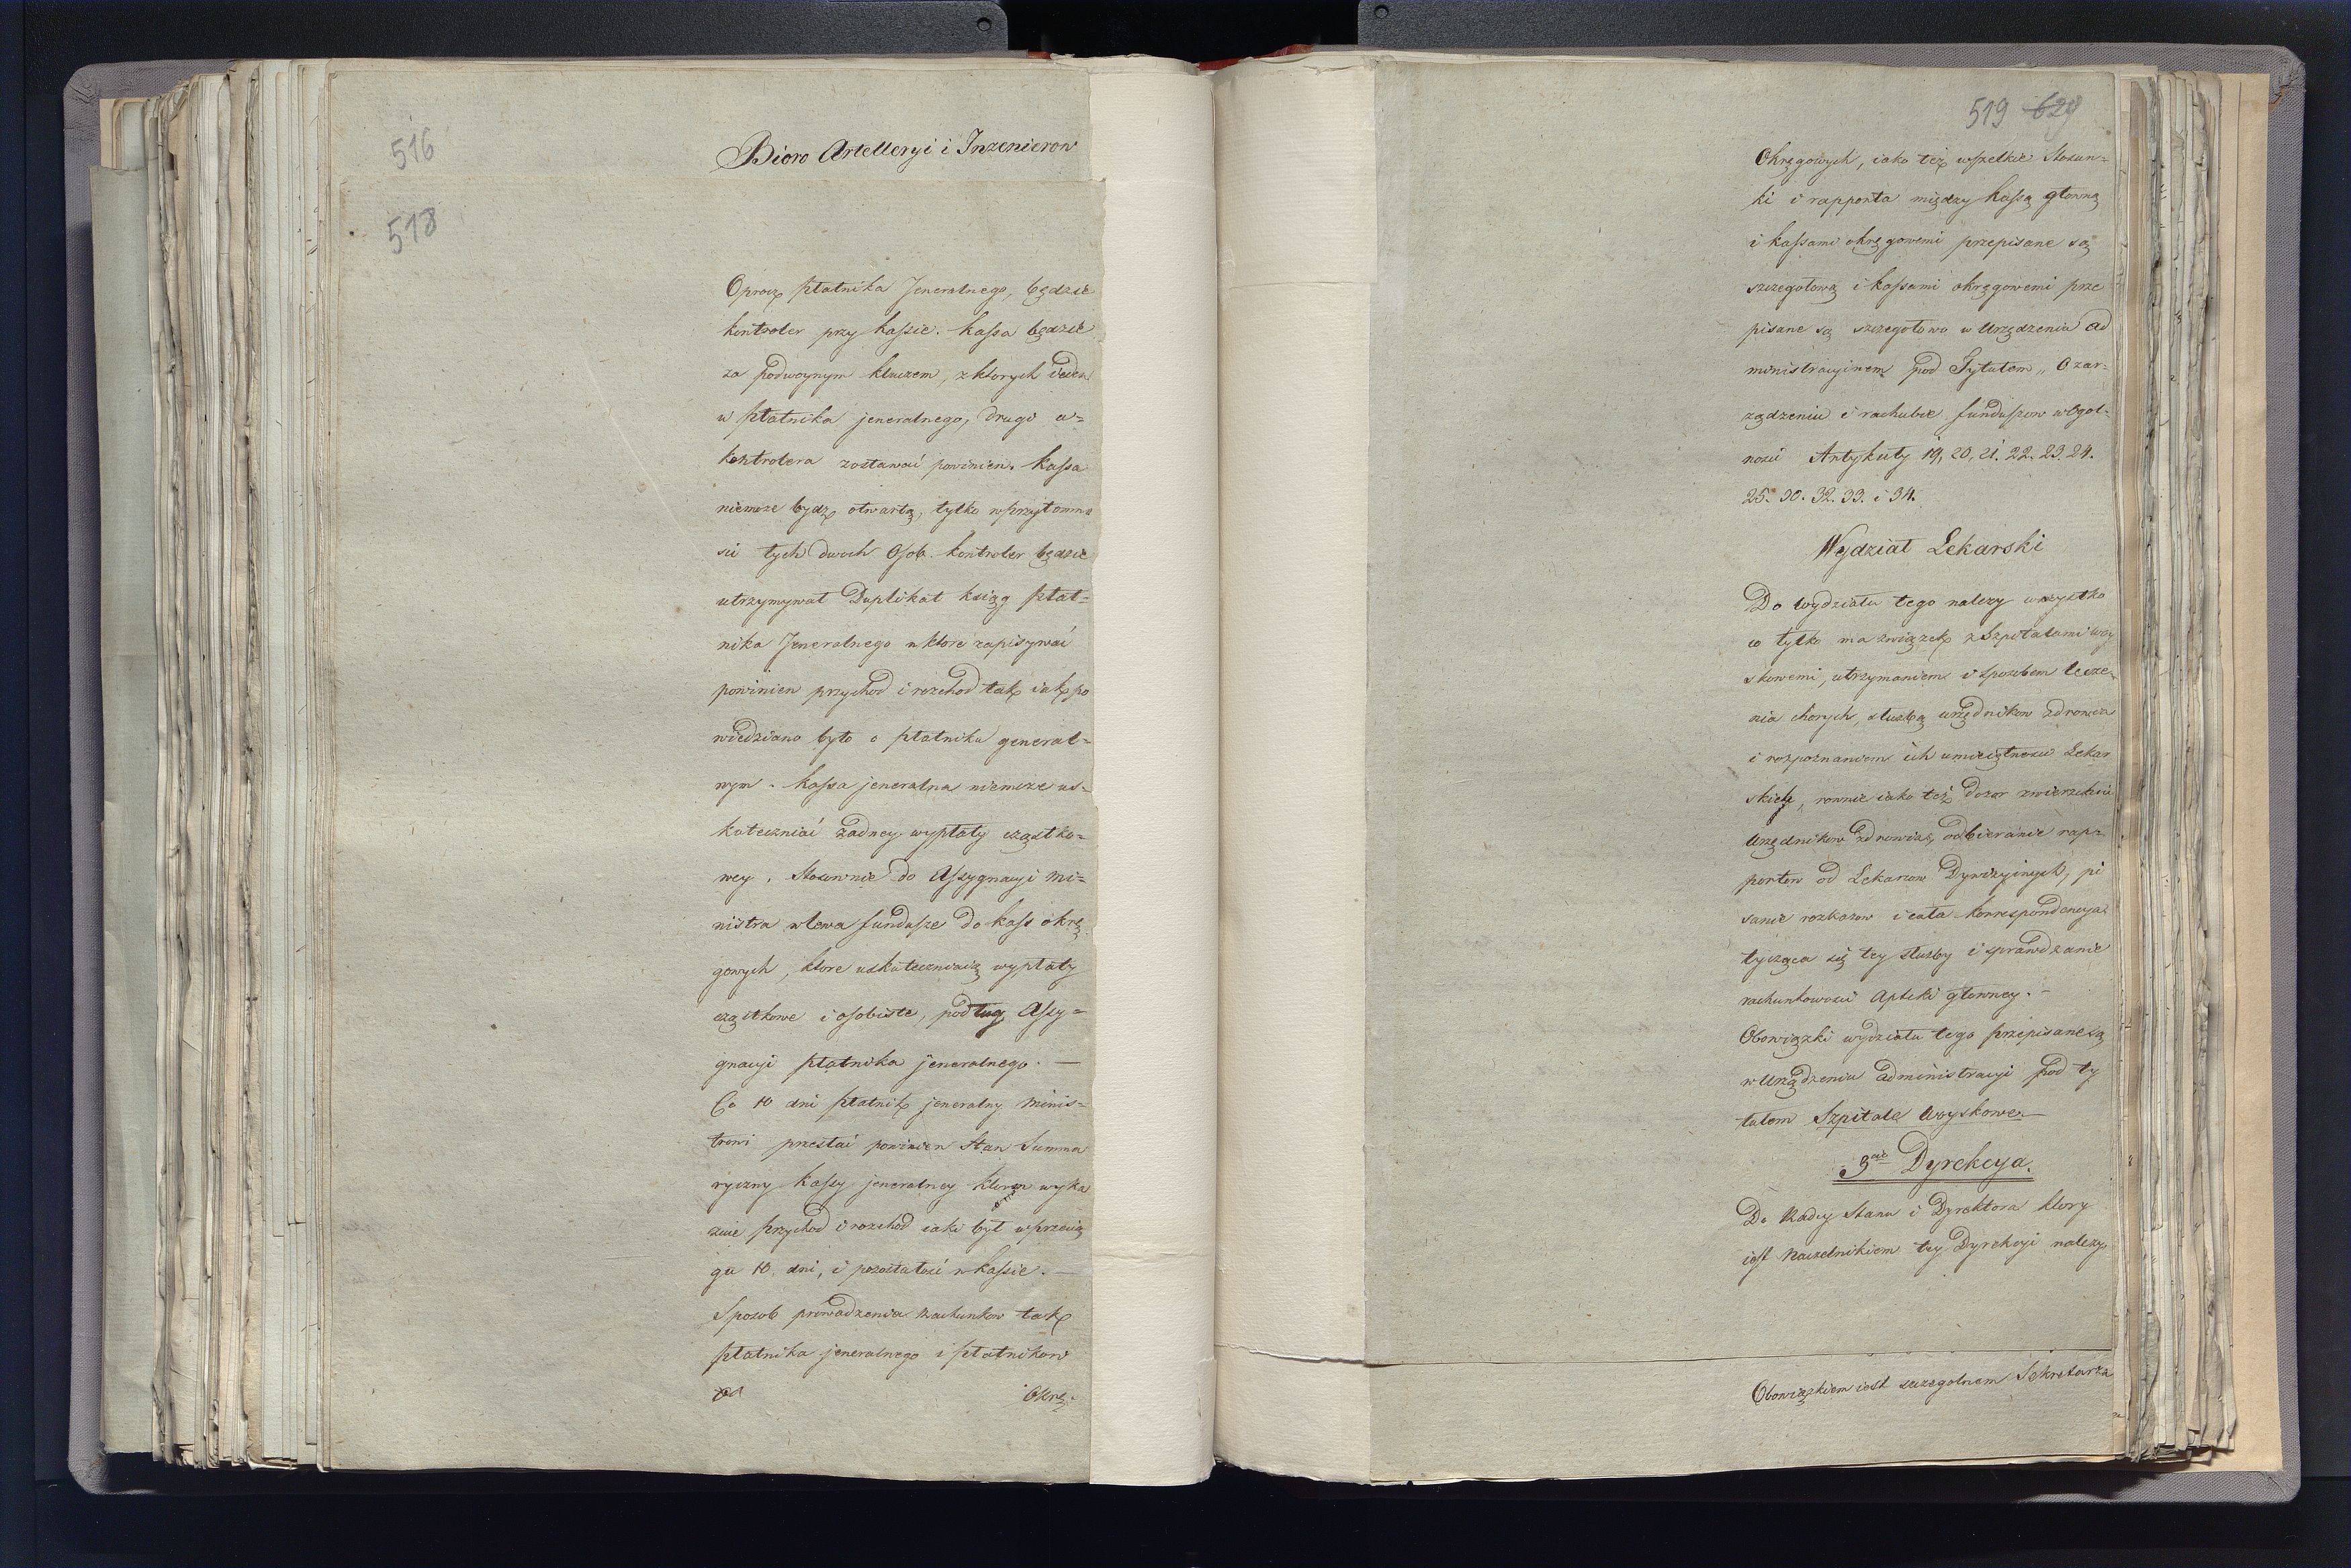 516
Bioro Artelleryi i Inzenierow
518
Oprocz płatnika Jeneralnego, będzie
kontroler przy kassie. kassa będzie
za podwoynym kluczem, z ktorych ieden
u płatnika jeneralnego, drugi u=
kontrolera zostawać powinien. kassa
niemoze bydz otwartą, tylko w przytomno
sci tych dwoch Osob. kontroler będzie
utrzymywał Duplikat ksiąg płat=
nika Jeneralnego w ktore zapisywać
powinien przychod i rozchod tak iak po
wiedziano było o płatniku general=
nym. kassa jeneralna niemoze us=
kuteczniać żadney wypłaty cząstko=
wey. Stosownie do Assygnacyi Mi=
nistra wlewa fundusze do kass okrę
gowych, ktore uskuteczniaią wypłaty
cząstkowe i osobiste, podług Assy=
gnacyi płatnika jeneralnego. —
Co 10 dni płatnik jeneralny Minis=
trowi przesłać powinien Stan Summa
ryczny kassy jeneralney ktoren wyka
zuie przychod i rozchod iaki był w przecią
gu 10 dni, i pozostałość w kassie. —
Sposob prowadzenia Rachunkow tak
płatnika jeneralnego i płatnikow
Okrę-
519 629
Okręgowych, iako też wszelkie Stosun=
ki i rapporta między kassą głowną
i kassami okręgowemi przepisane są
szczegołową i kassami okręgowemi prze
pisane są szczegołowo w Urządzeniu ad
ministracyinem pod Tytułem „ O zar=
ządzeniu i rachubie funduszow w Ogol=
nosci Artykuły 19, 20, 21. 22. 23. 24.
25. 30. 32. 33. i 34.
Wydział Lekarski
Do wydziału tego nalezy wszystko
co tylko ma związek z Szpitalami woy
skowemi, utrzymaniem i sposobem lecze
nia chorych, słuzbą urzędnikow zdrowia
i rozpoznaniem ich umieiętnosci Lekar
skiey, rownie iako też dozor zwierzchni
Urzędnikow zdrowia, odbieranie rap=
portow od Lekarzow Dywizyinych, pi
sanie rozkazow i cała korrespondencya
tycząca się tey słuzby i sprawdzanie
rachunkowosci Apteki głowney. —
Obowiązki wydziału tego przepisane są
w Urządzeniu administracyi pod ty
tułem Szpitale Woyskowe. —
3cia Dyrekcya.
Do Radcy Stanu i Dyrektora ktory
iest Naczelnikiem tey Dyrekcyi nalezy
Obowiązkiem iest szczegolnem Sekretarza